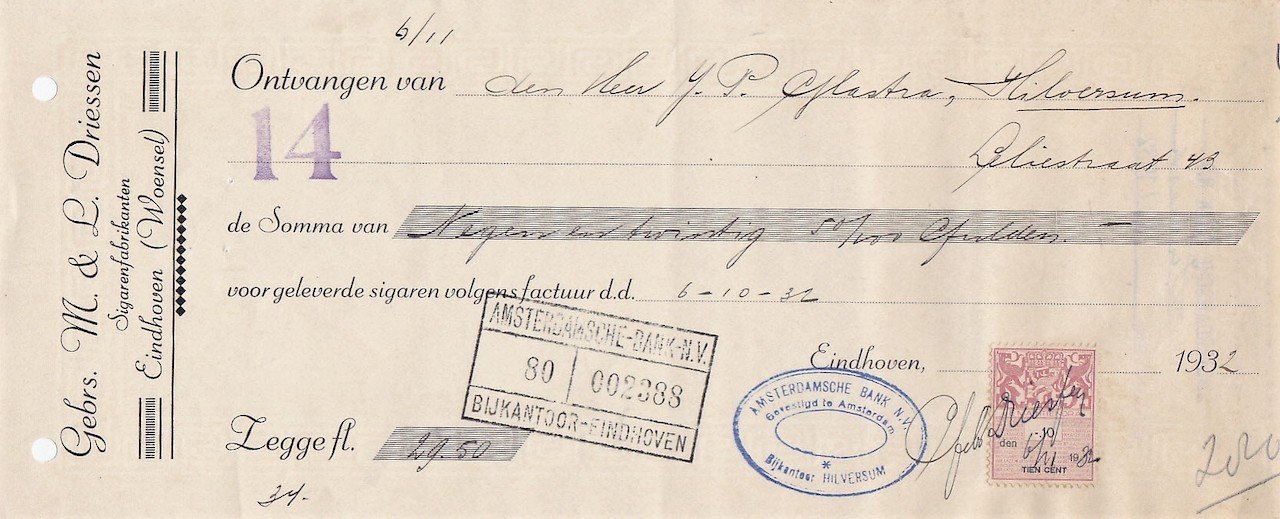 Gebrs. M. & L. Driessen
Sigarenfabrikanten
Eindhoven (Woensel)
6/11
Ontvangen van den Heer J. P. Glastra, Hilversum.
14
Leliestraat 43
de Somma van Negen en twintig 50/100 Gulden.
voor geleverde sigaren volgens factuur d.d. 6-10-32
AMSTERDAMSCHE-BANK-N.V.
80 002388
BIJKANTOOR-EINDHOVEN
Eindhoven, 1932
AMSTERDAMSCHE BANK N.V.
Gevestigd te Amsterdam
*
Bijkantoor HILVERSUM
Driessen
10
den 6/11 1932
TIEN CENT
Zegge fl. 29.50
34.-